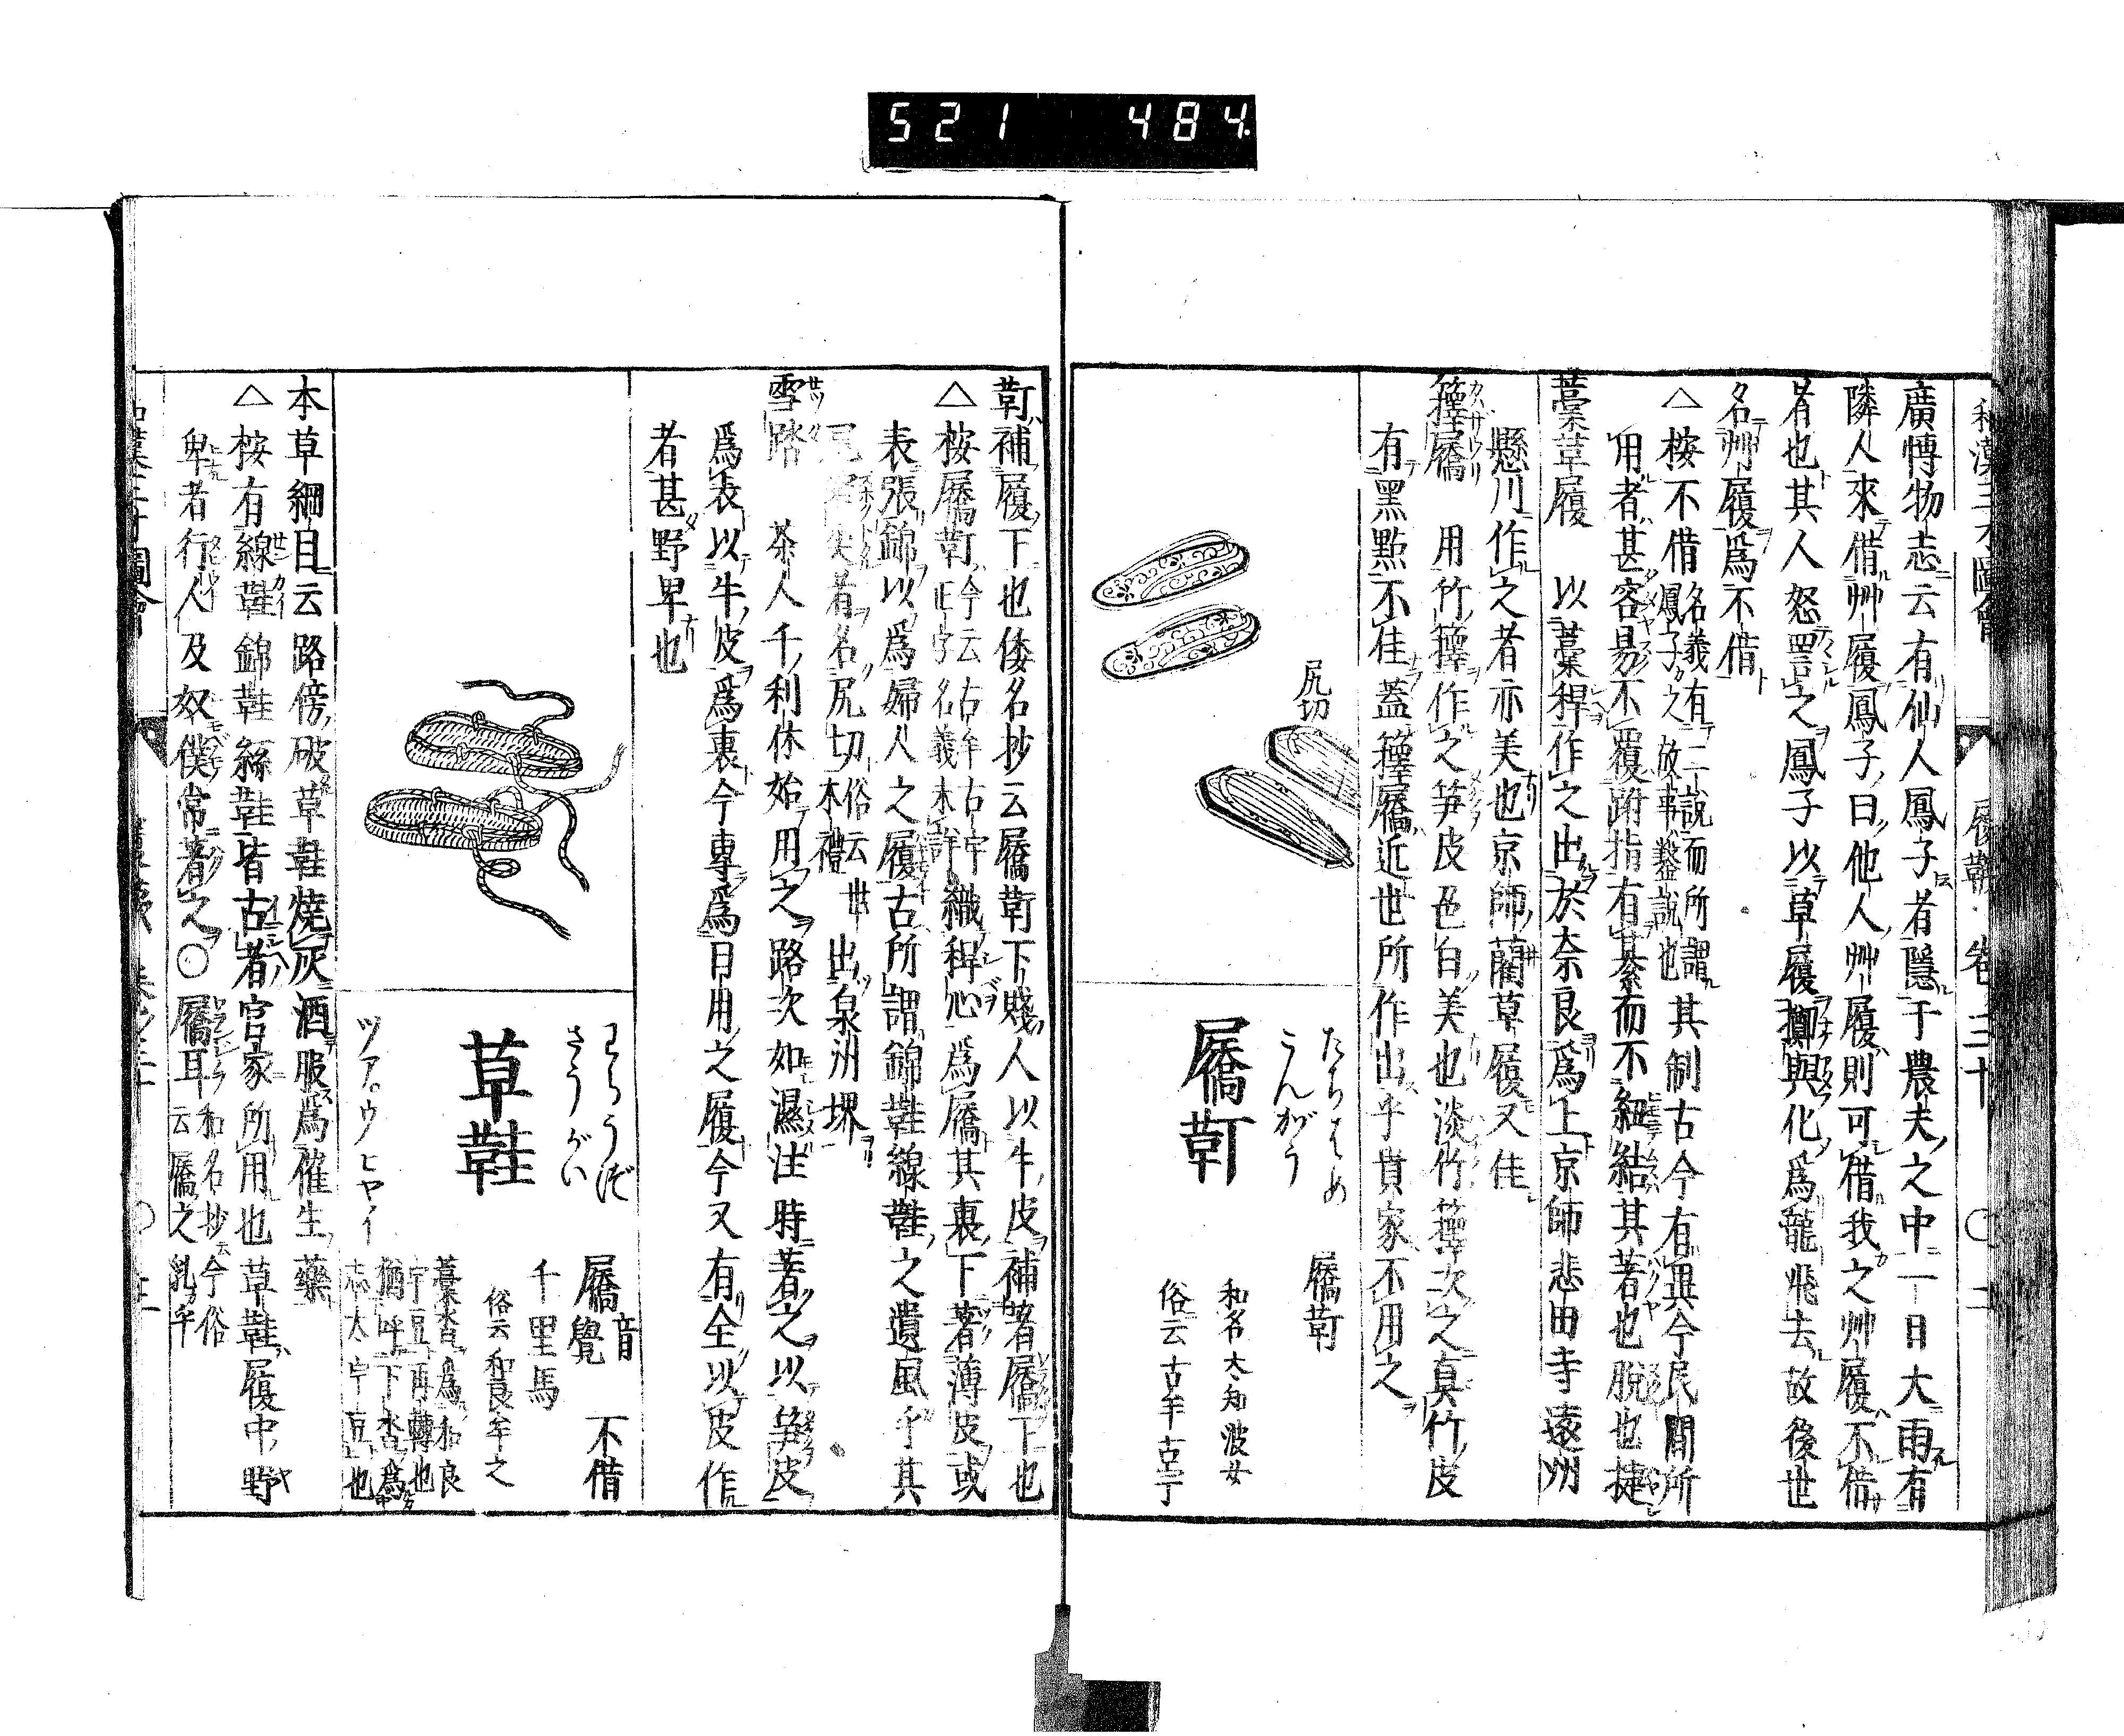 521 484
和漢三才圖會 履韈 卷三十 〇 二
廣博物志云有仙人鳳子者隱于農夫之中一日大雨有
隣人來借艸履鳳子曰他人艸履則可借我之艸履不借
者也其人怒詈之鳳子以草履擲與化爲龍飛去故後世
名艸履爲不借
△按不借名義有二說而所謂鳳子之故事鑿說也其制古今有異今民間所
用者甚容易不覆跗指有綦而不紐結其著也脫也捷
藁草履 以藁稈作之出於奈良爲上京師悲田寺遠州
懸川作之者亦美也京師藺草履又佳
籜屩 用竹籜作之笋皮色白美也淡竹籜次之真竹皮
有黑點不佳蓋籜屩近世所作出乎貴家不用之
尻切
たちはめ
こんがう
屩䩕
屩䩕
和名太知波女
俗云古牟古宇
䩕補履下也倭名抄云屩䩕下賤人以牛皮補著屩下也
△按屩䩕今云古牟古宇正字名義未詳織稈心爲屩其裏下著薄皮或
表張錦以爲婦人之履古所謂錦鞋線鞋之遺風乎其
尻尖者名尻切俗云世木禮出泉州堺
雪踏 茶人千利休始用之路次如濕注時著之以笋皮
爲表以牛皮爲裏今專爲日用之履今又有全以皮作
者甚野卑也
わらうづ
さうがい
草鞋
ツアウヒヤイ
屩音覺 不借
千里馬
俗云和良牟之
藁沓爲和良宇豆再轉也
猶呼下沓爲志太宇豆也
本草綱目云路傍破草鞋燒灰酒服爲催生藥
△按有線鞋錦鞋絲鞋皆古者宮家所用也草鞋履中野
卑者行人及奴僕常著之〇屩耳和名抄云屩之乳今俗